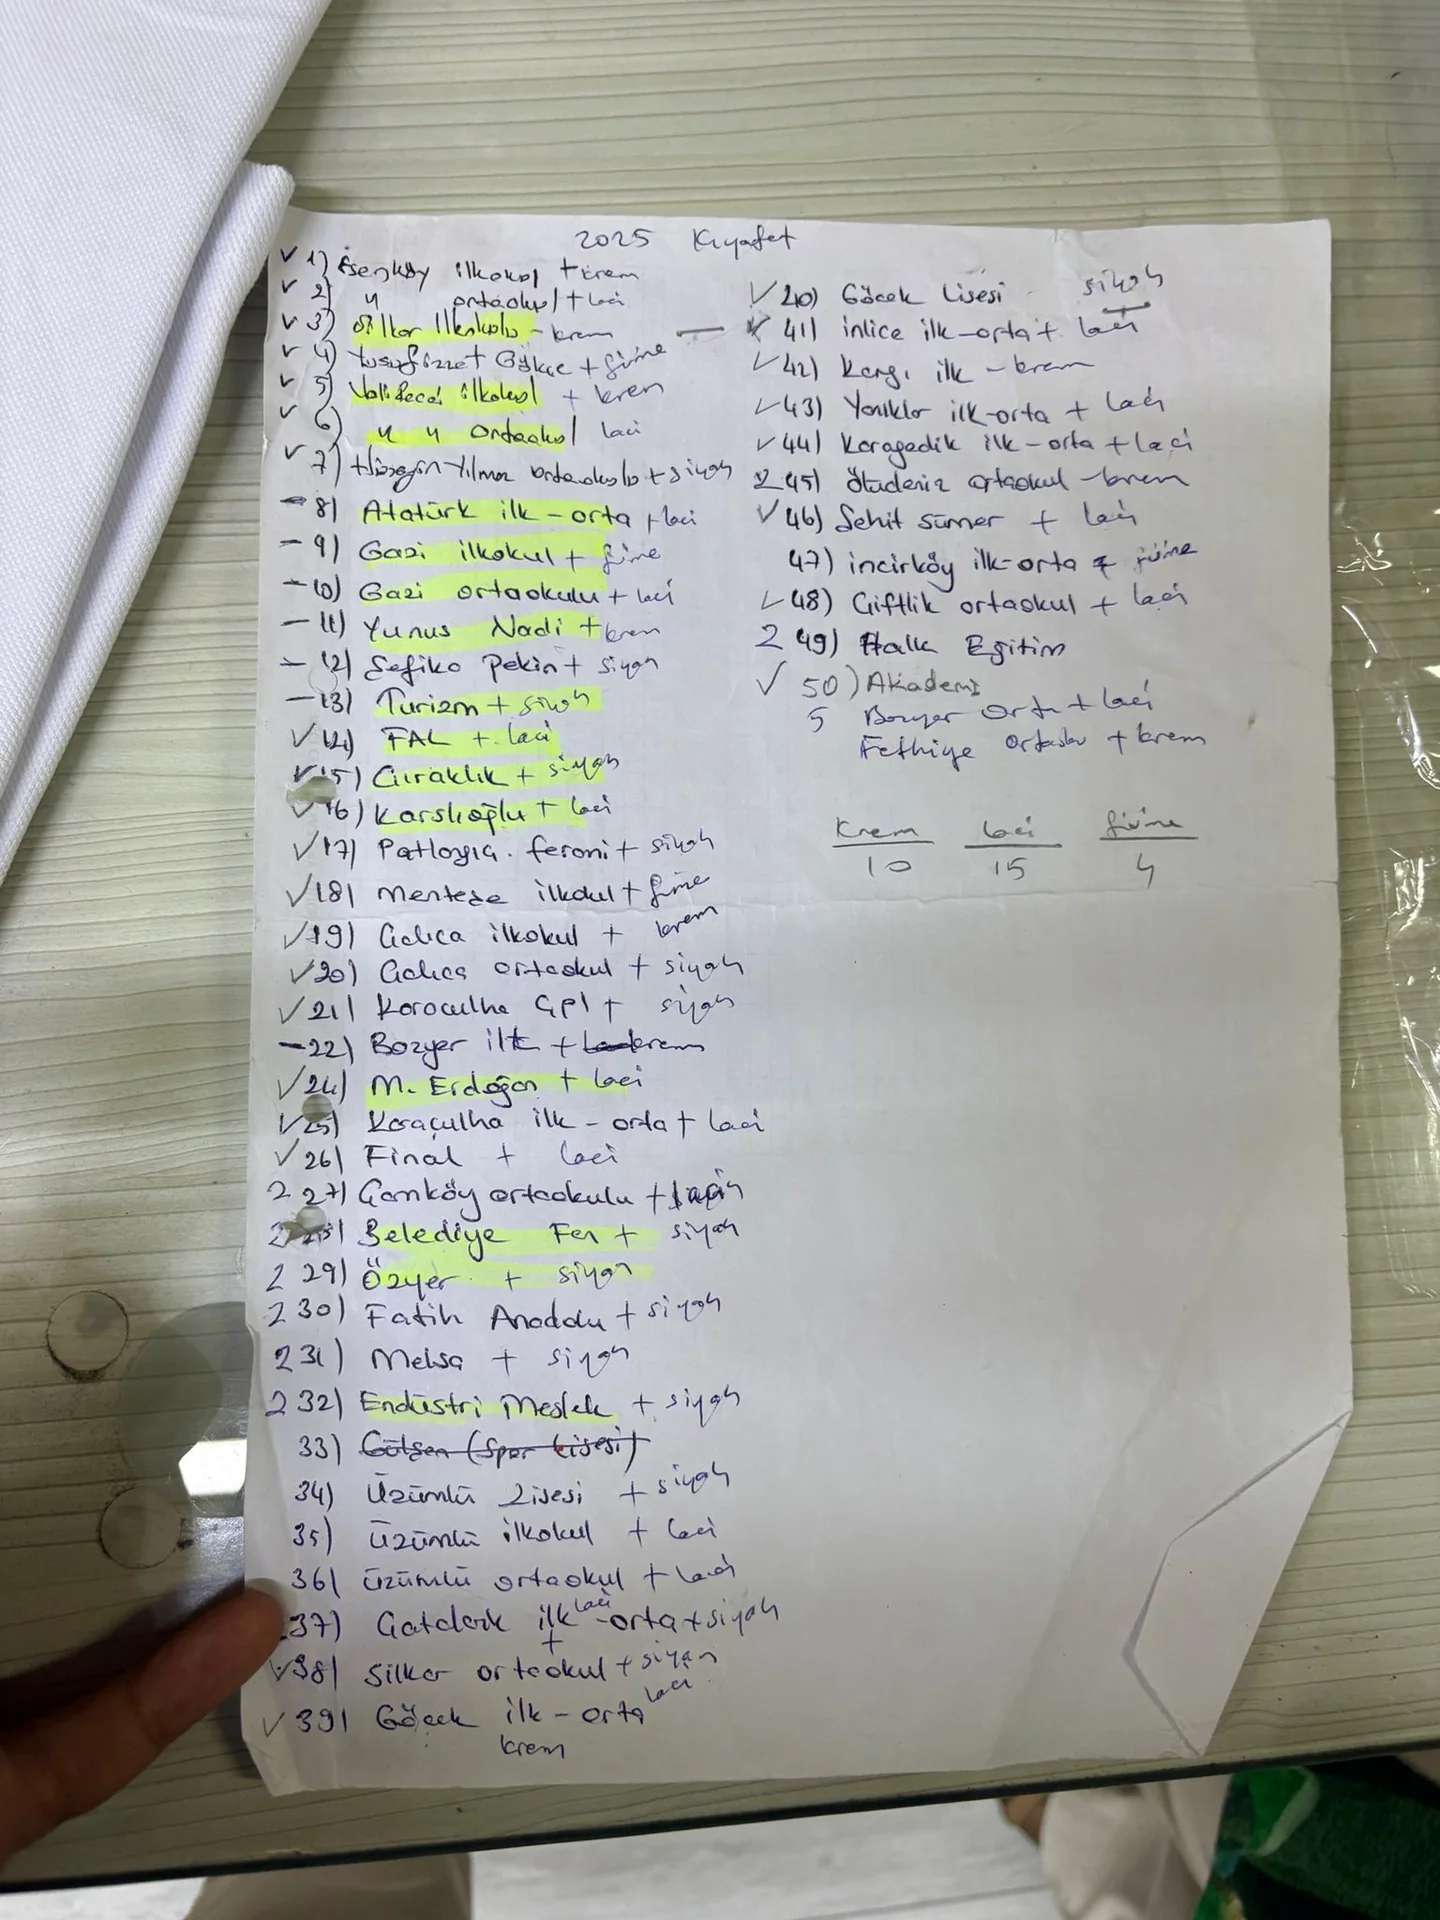 2025 Kıyafet
✓ 1) Esenköy ilkokul + krem
✓ 2) " ortaokul + laci
✓ 3) Silkar İlkokulu - krem
✓ 4) Yusufizzet Gökçe + füme
✓ 5) Validecei ilkokul + krem
✓ 6) " " Ortaokul laci
✓ 7) Hüseyin Yılmaz ortaokulu + siyah
- 8) Atatürk ilk - orta + laci
- 9) Gazi ilkokul + füme
- 10) Gazi ortaokulu + laci
- 11) Yunus Nadi + krem
- 12) Şefika Pekin + siyah
- 13) Turizm + siyah
✓ 14) FAL + laci
✓ 15) Çıraklık + siyah
✓ 16) Karslıoğlu + laci
✓ 17) Patlangıç feroni + siyah
✓ 18) Menteşe ilkokul + füme
✓ 19) Çalıca ilkokul + krem
✓ 20) Çalıca ortaokul + siyah
✓ 21) Karaçulha ÇPL + siyah
- 22) Bozyer ilk + krem
✓ 24) M. Erdoğan + laci
✓ 25) Karaçulha ilk - orta + laci
✓ 26) Final + laci
2 27) Çamköy ortaokulu +
2 28) Belediye Fen + siyah
2 29) Özyer + siyah
2 30) Fatih Anadolu + siyah
2 31) Melsa + siyah
2 32) Endüstri Meslek + siyah
33) Gülşen (Spor Lisesi)
34) Üzümlü Lisesi + siyah
35) Üzümlü ilkokul + laci
36) Üzümlü ortaokul + laci
37) Çatdere ilk laci - orta + siyah
+
✓ 38) Silkar ortaokul + siyah
✓ 39) Göcek ilk - orta laci
krem
✓ 40) Göcek Lisesi siyah
✓ 41) inlice ilk - orta + laci
✓ 42) Kargı ilk - krem
✓ 43) Yanıklar ilk-orta + laci
✓ 44) Karagedik ilk - orta + laci
2 45) Ölüdeniz ortaokul - krem
✓ 46) Şehit Sümer + laci
47) incirköy ilk-orta + füme
✓ 48) Çiftlik ortaokul + laci
2 49) Halk Eğitim
✓ 50) Akademi
5 Bozyer Orta + laci
Fethiye Ortaoku + krem
Krem laci füme
10 15 4